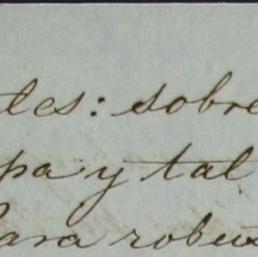 tes: sobre
pa y tal
Para robus